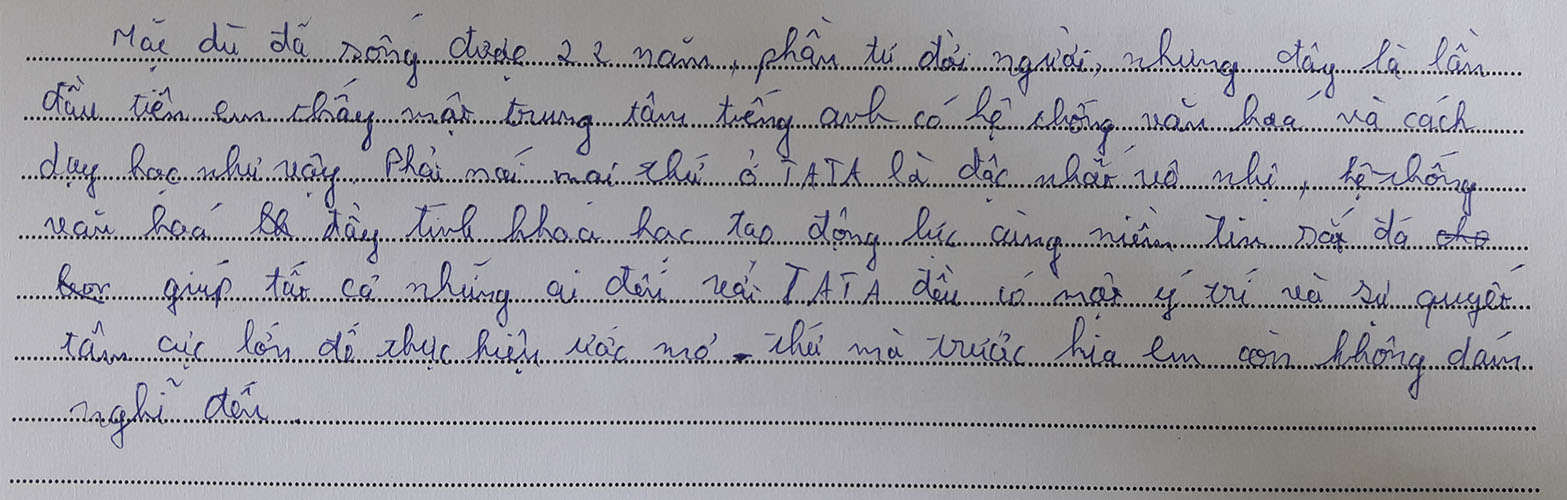 Mặc dù đã sống được 22 năm, phần tư đời người, nhưng đây là lần
đầu tiên em thấy một trung tâm tiếng anh có hệ thống văn hoá và cách
dạy học như vậy. Phải nói mọi thứ ở TATA là độc nhất vô nhị, hệ thống
văn hoá đầy tính khoa học tạo động lực cùng niềm tin sắt đá cho
giúp tất cả những ai đến với TATA đều có một ý trí và sự quyết
tâm cực lớn để thực hiện ước mơ - thứ mà trước kia em còn không dám
nghĩ đến.